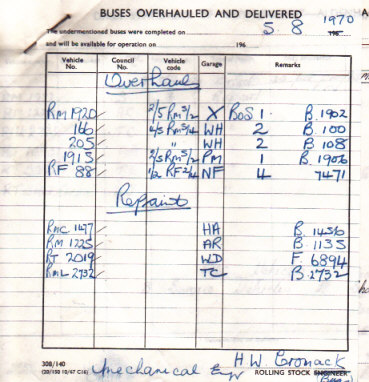 BUSES OVERHAULED AND DELIVERED
The undermentioned buses were completed on 5 8 1970 196
and will be available for operation on 196
Vehicle No. Council No. Vehicle code Garage Remarks
Overhaul
RM 1920 2/5 RM5/2 X BoS 1. B. 1902
166 4/5 RM5/4 WH 2 B. 100
205 " WH 2 B 108
1913 2/5 RM5/2 PM 1 B. 1906
RF 88 1/2 RF2/4 NF 4 7471
Repaint
RMC 1477 HA B. 1456
RM 1225 AR B. 1135
RT 2019 WD F. 6894
RML 2732 TC B. 2732
308/140
(20/150 10/67 C16) Mechanical Engr H W Cronack
ROLLING STOCK ENGINEER